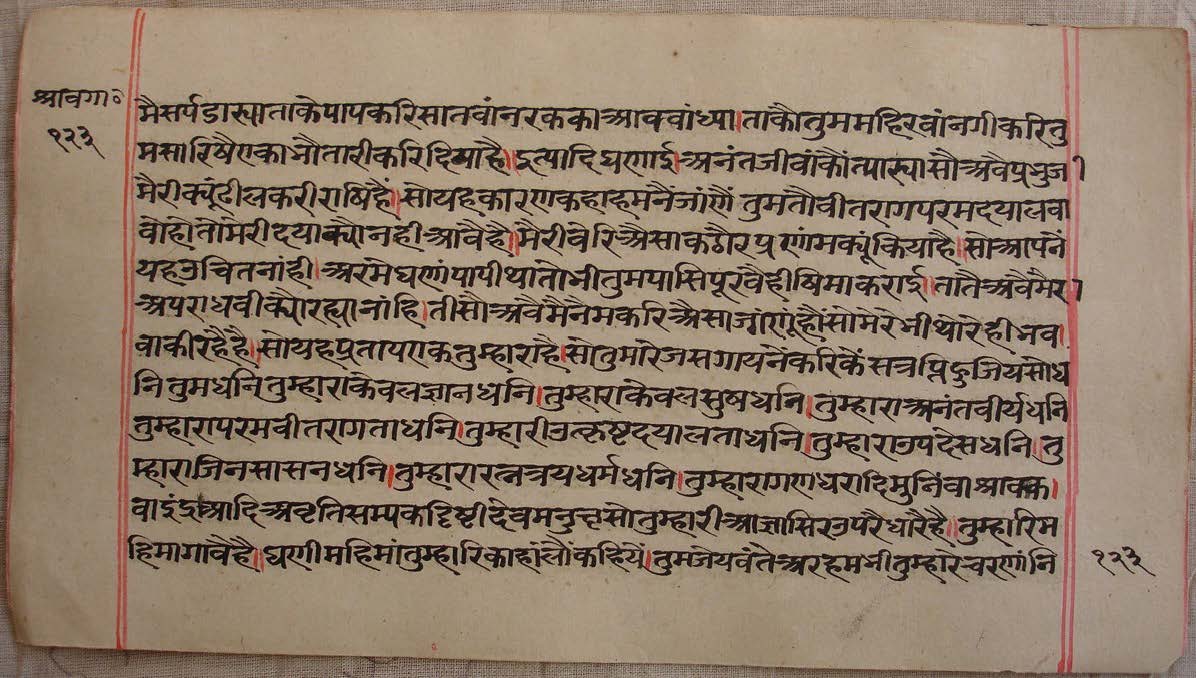 श्रावगा०
१२३
मैसर्पडास्याताकेपापकरिसातवांनरककाआववांध्या।ताकौतुममहिरवांनगीकरितु
मसारिषैएकाभौतारीकरिदियाहै॥इत्यादिघणाई।अनंतजीवांकौंत्यास्यासौअवैप्रभुजी
मैरीक्यूंढीलकरीराषिहैं।सोयहकारणकहाहमनैंजांणौं तुमतौवीतरागपरमदयालवा
वोहोतोमेरीदयाक्यौनहीआवैहै॥मैरीवेरिअैसाकठौरप्रणांमक्यूंकियाहै॥सोआपनें
यहउचितनांही।अरमेघणांपापीथातोभीतुमपासिपूरवैहीषिमाकराई।तातैअवैमैरा
अपराधवीक्योरह्यानांहि।तीसौअवैमैनैमकरिअैसाजांणूंहौं।सोमेरेभीथोरेहीभव।
वाकीरहैहै।सोयहप्रतापएकतुम्हाराहै।सोतुमारेजसगायनेकरिकें
नितुमधनि।तुम्हाराकेवलज्ञानधनि।तुम्हाराकेवलसुषधनि।तुम्हाराअनंतवीर्यधनि
तुम्हारापरमवीतरागताधनि।तुम्हारीउत्कृष्टदयालताधनि।तुम्हाराउपदेसधनि।तु
म्हाराजिनसासनधनि।तुम्हारारत्नत्रयधर्मधनि।तुम्हारागणधरादिमुनिंवाश्रावक।
वाइंद्रआदिअवृतिसम्यकदिष्टीदेवमनुष्यसोतुम्हारीआज्ञासिरउपरैधारैहै॥तुम्हारिम
हिमागावैहै॥घणीमहिमांतुम्हारिकाहांलौंकहियें।तुमजयवंतेअरहमभीतुम्हारेचरणांनि
१२३